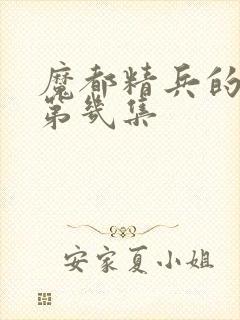 魔都精兵的
第几集
安家夏小姐